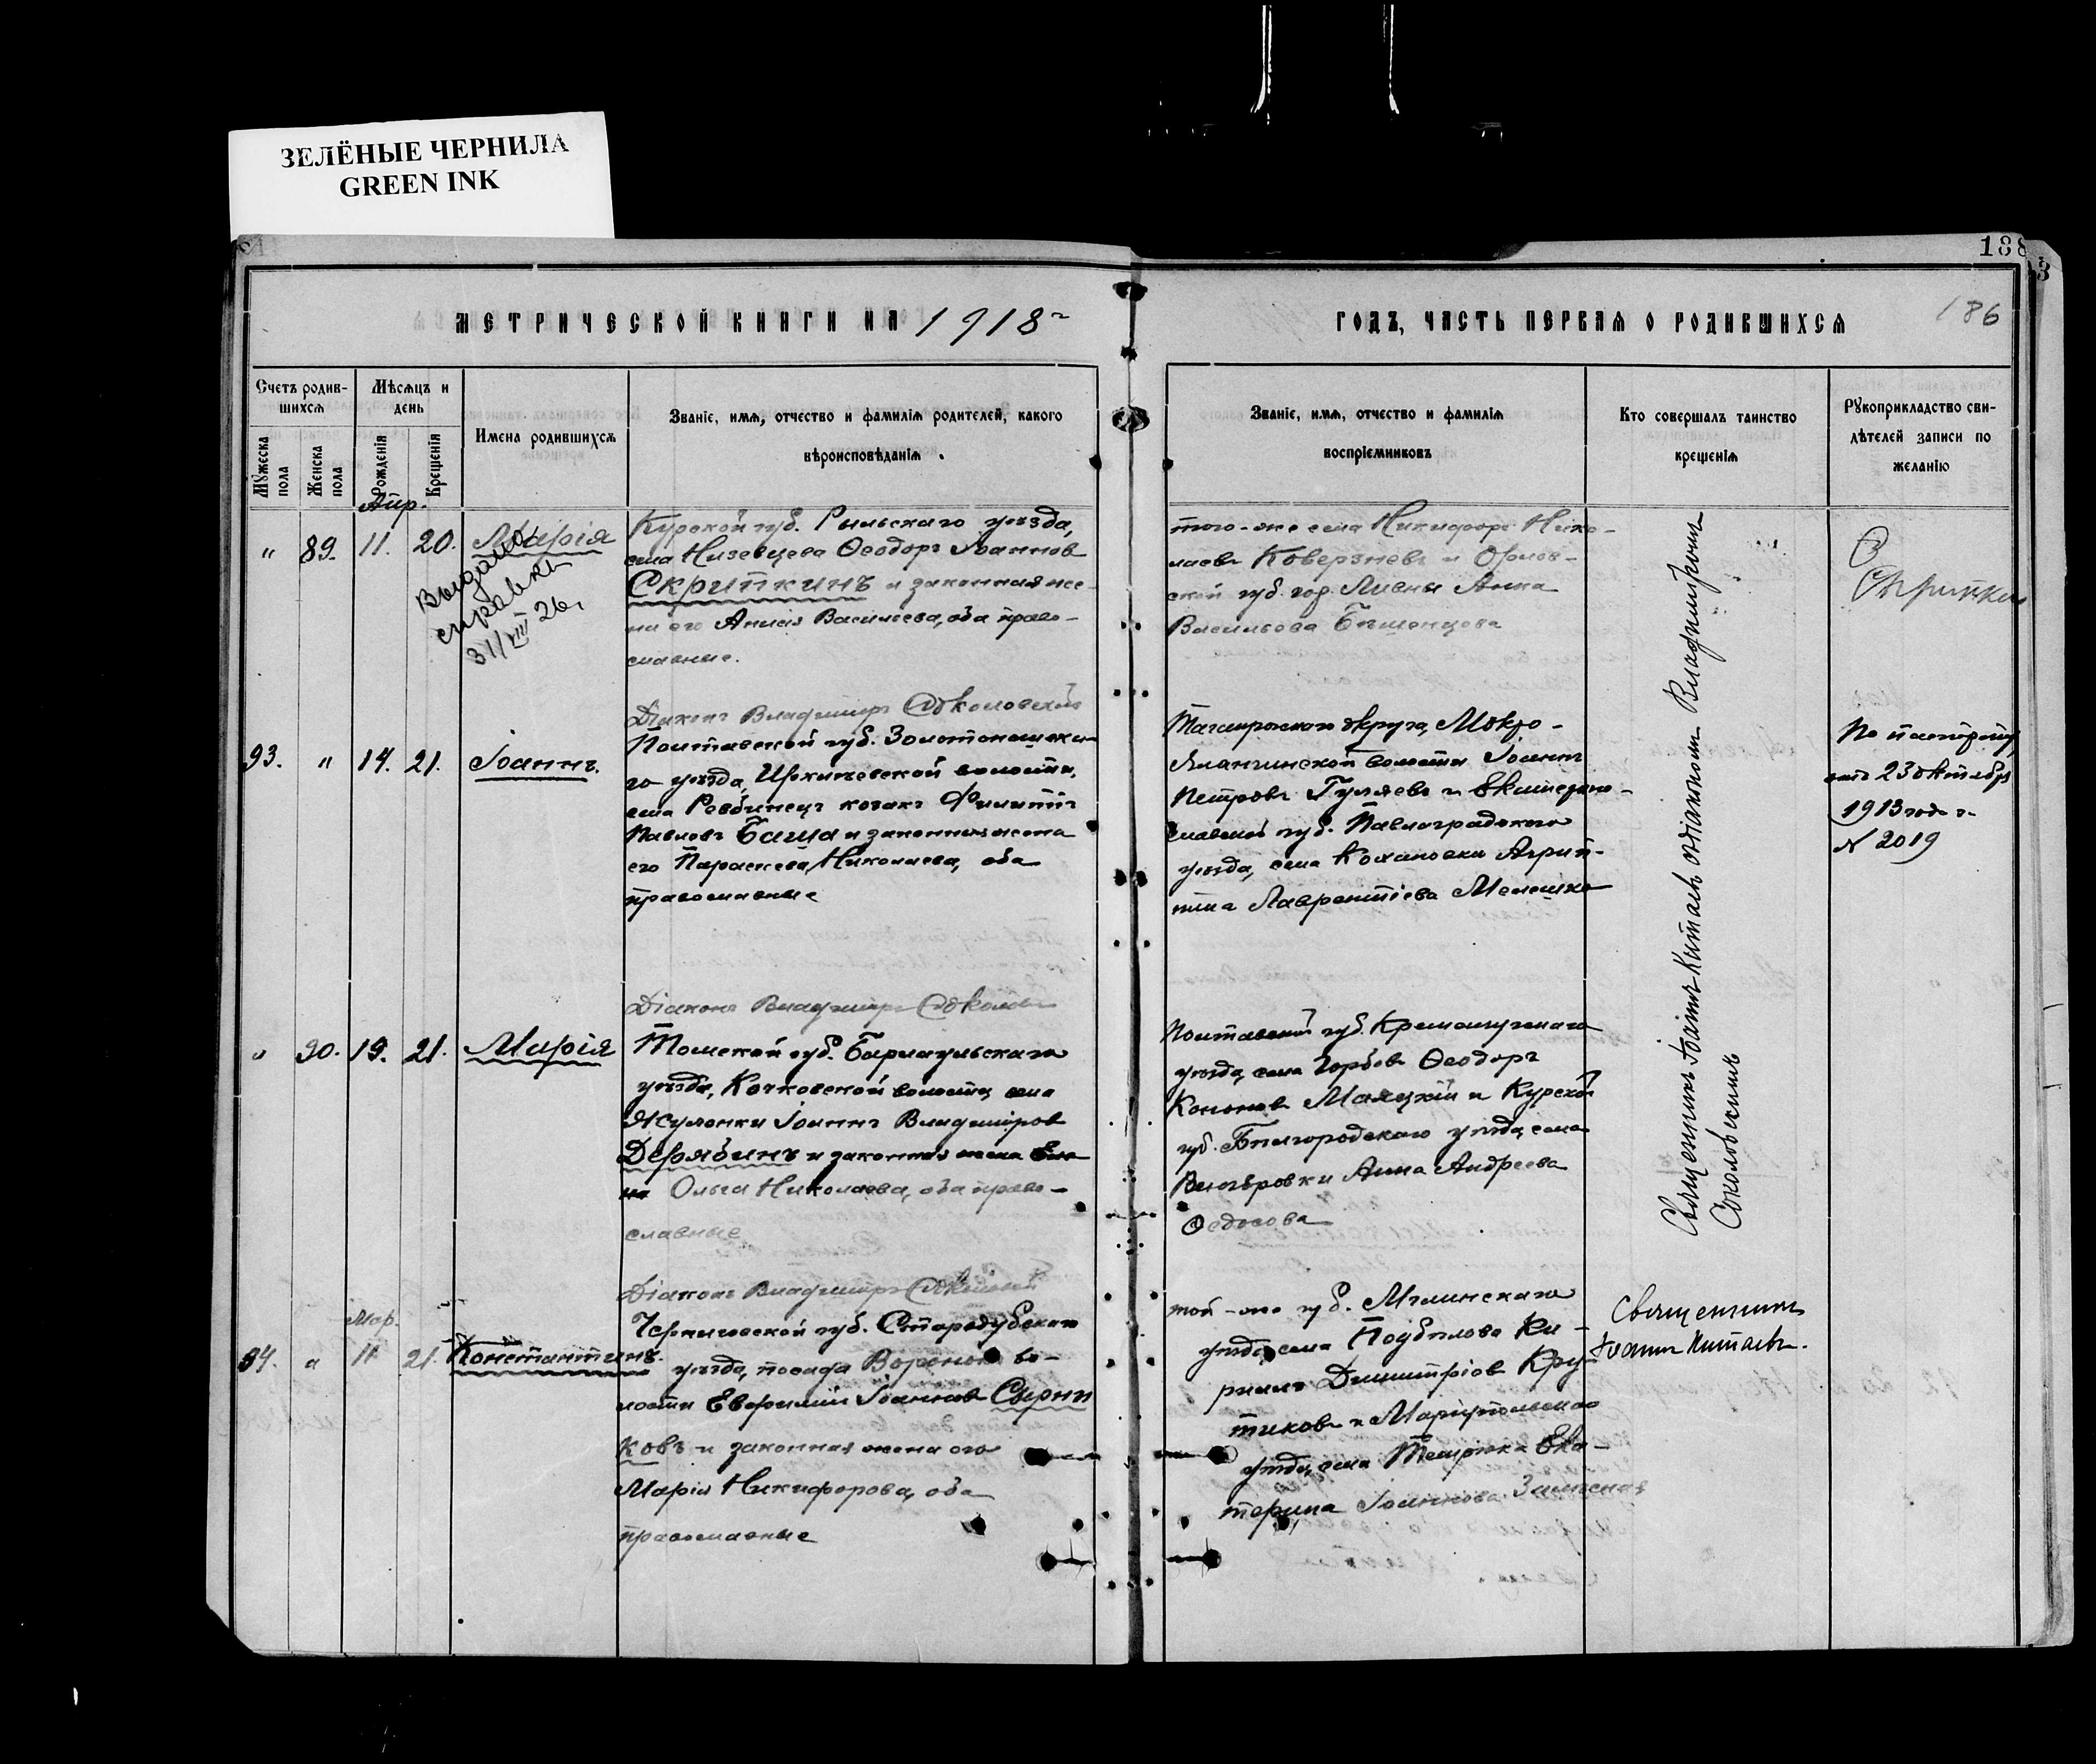 ЗЕЛЁНЫЕ ЧЕРНИЛА
GREEN INK
188
186
МЕТРИЧЕСКОЙ КНИГИ НА 1918 г
ГОДЪ, ЧАСТЬ ПЕРВАЯ О РОДИВШИХСЯ
Счетъ родив-
шихся
Мѣсяцъ и
день
Мужеска пола
Женска пола
Рожденія
Крещенія
Имена родившихся
Званіе, имя, отчество и фамилія родителей, какого
вѣроисповѣданія
Званіе, имя, отчество и фамилія
воспріемниковъ
Кто совершалъ таинство
крещенія
Рукоприкладство сви-
дѣтелей записи по
желанію
Апр.
" 89. 11. 20. Марія
Выдана
справка
31/VIII 26 г
Курской губ. Рыльскаго уѣзда,
села Низевцева Ѳеодоръ Іоаннов
Скрипкинъ и законная же-
на его Анисія Васильева, оба право-
славные.
того-же села Никифоръ Нико-
лаевъ Коверзневъ и Орлов-
ской губ. гор. Ливны Анна
Васильева Бѣшенцева
Скрипкин
Діаконъ Владимиръ Соколовскій
93. " 14. 21. Іоаннъ.
Полтавской губ. Золотоношска-
го уѣзда, Ирклѣевской волости,
села Ревбинецъ козакъ Филиппъ
Павловъ Баща и законная жена
его Параскева Николаева, оба
православные
Таганрогскаго округа, Мокро-
Яланчинской волости Іоаннъ
Петровъ Гуляевъ и Екатерино-
славской губ. Павлоградскаго
уѣзда, села Кохановки Агрип-
пина Лаврентіева Мелешко
По паспорту
отъ 23 октября
1913 года г.
№ 2019
Діаконъ Владимиръ Соколов
" 90. 19. 21. Марія
Томской губ. Барнаульскаго
уѣзда, Кочковской волости, села
Жуланки Іоаннъ Владиміров
Дерябинъ и законная жена
Ольга Николаева, оба право-
славные
Полтавской губ. Кременчугскаго
уѣзда, села Горбов Ѳеодоръ
Кононов Малецкій и Курской
губ. Бѣлгородскаго уѣзда, села
Анна Андреева
Ѳедосова
Священникъ Іоаннъ Китаевъ съ діакономъ Владиміромъ
Соколовскимъ
Діаконъ Владимиръ Соколовскій
Мар.
94. " 11 21. Константинъ.
Черниговской губ. Стародубскаго
уѣзда, посада Воронок во-
лости Евфимій Іоаннов Сырни
ковъ и законная жена его
Марія Никифорова, оба
православные
той-же губ. Мглинскаго
уѣзда, села Подбѣлова Ки-
риллъ Димитріов Кру-
тиковъ и Маріупольскаго
уѣзда, села Темрюка Ека-
терина Іоаннова
Священникъ
Іоаннъ Китаевъ.